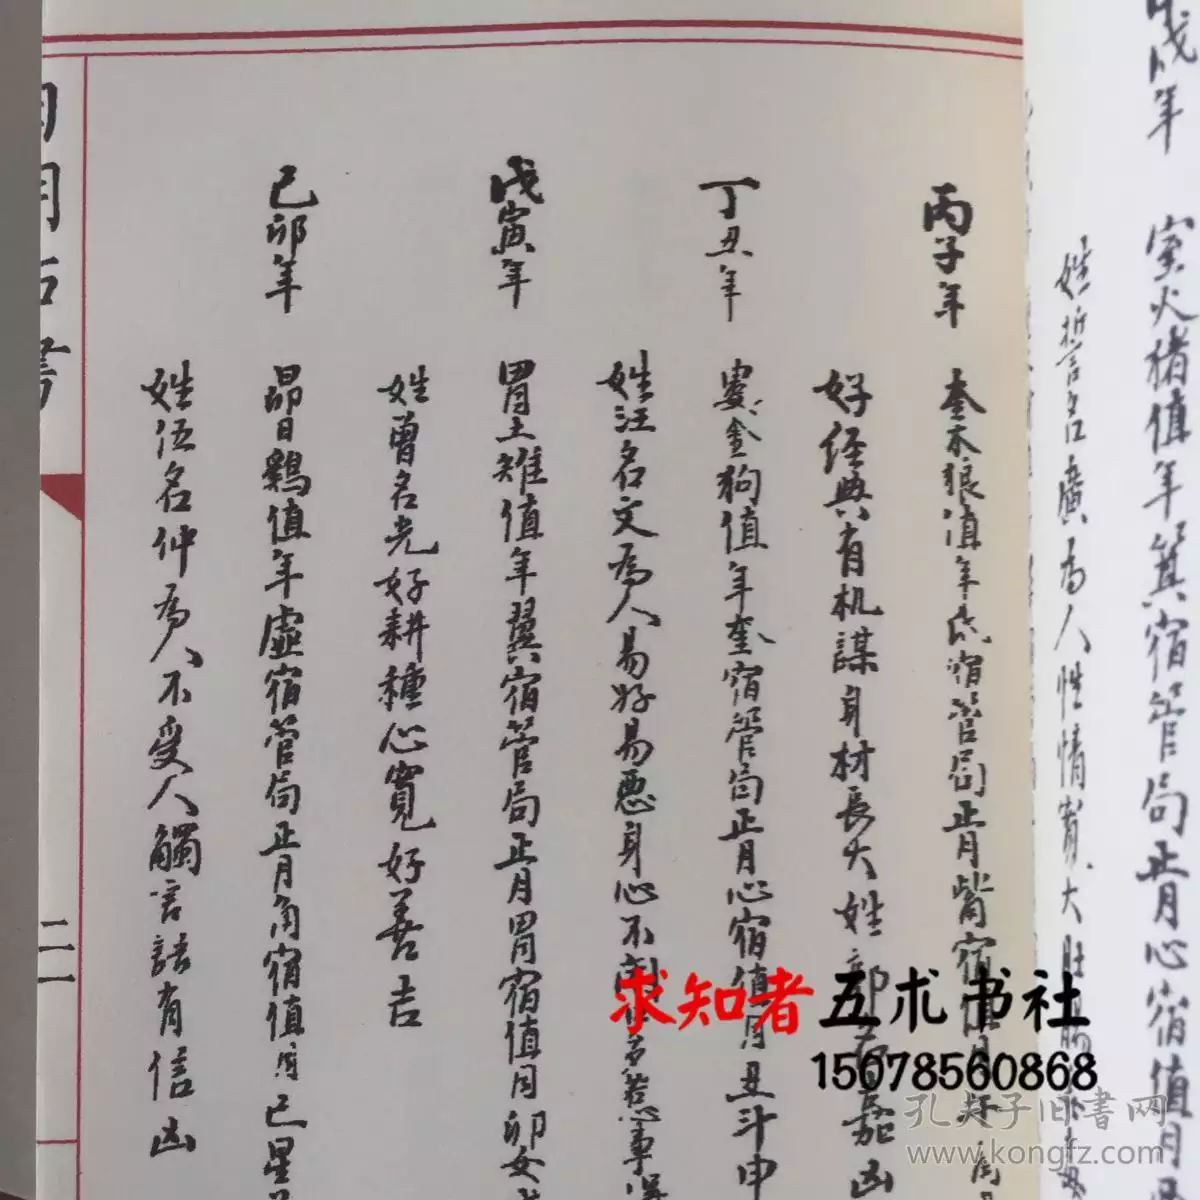 戊年 室火猪值年箕宿管局正月心宿值月
姓哲名廣為人性情寬大
丙子年 奎木狼值年氐宿管局正月觜宿值月
好经典有机謀身材長大姓郭名嘉凶
丁丑年 婁金狗值年奎宿管局正月心宿值月丑斗申
姓汪名文為人易好易惡身心不閑
戊寅年 胃土雉值年翼宿管局正月胃宿值月卯女
姓曾名光好耕種心寬好善吉
己卯年 昴日鷄值年虛宿管局正月角宿值月巳星
姓伍名仲為人不受人觸言語有信凶
二一
求知者 五术书社
15078560868
孔夫子旧书网
www.kongfz.com